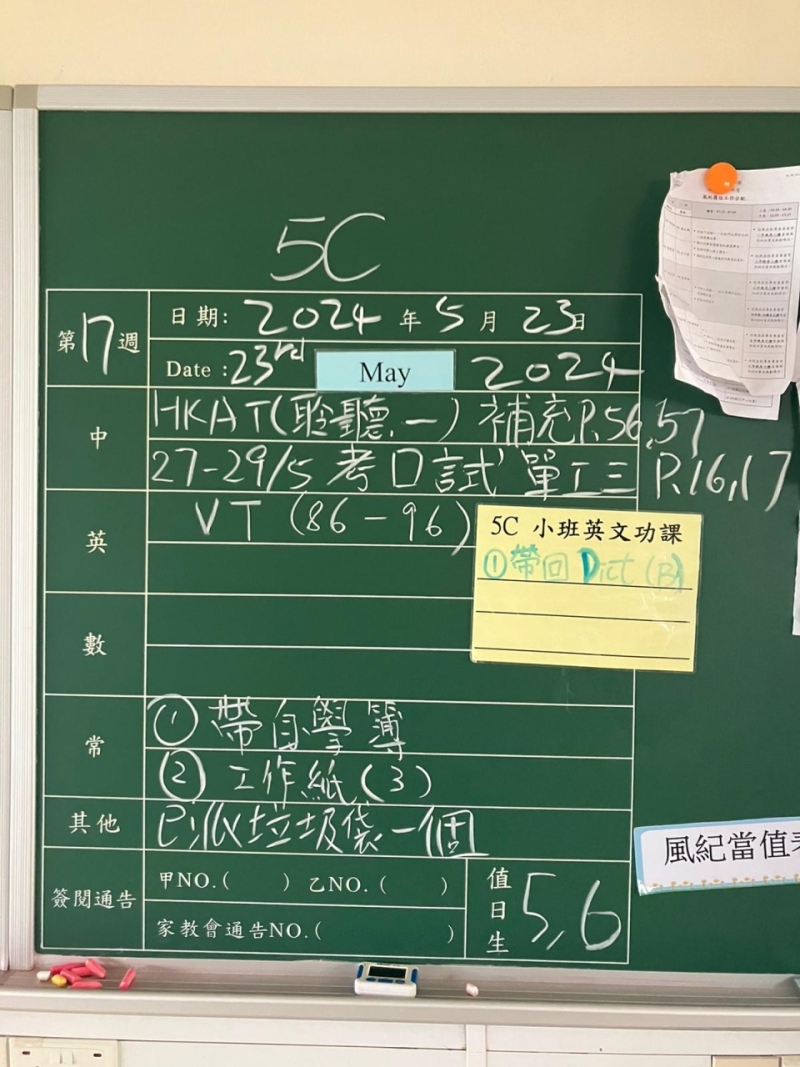 5C
第17週
日期: 2024 年 5 月 23日
Date : 23rd May 2024
中
HKAT(聆聽一) 補充P.56,57
27-29/5 考口試 單工三 P.16,17
英
VT (86-96)
5C 小班英文功課
①帶回 Dict (B)
數
常
① 帶自學簿
② 工作紙(3)
其他
已派垃圾袋一個
簽閱通告
甲NO.( ) 乙NO.( )
家教會通告NO.( )
值日生 5,6
風紀當值